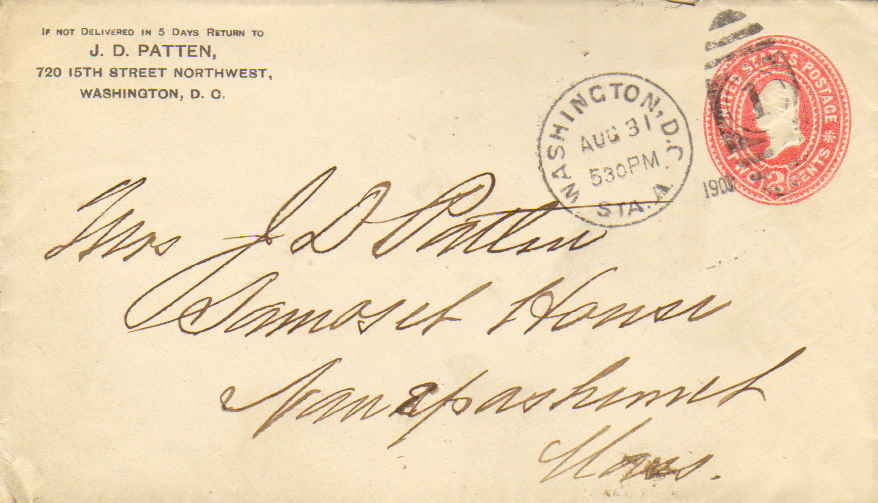 IF NOT DELIVERED IN 5 DAYS RETURN TO
J. D. PATTEN,
720 15TH STREET NORTHWEST,
WASHINGTON, D. C.
WASHINGTON, D.C.
AUG 31
530PM
STA. A.
UNITED STATES POSTAGE
TWO 2 CENTS
1
Mrs J D Patten
Samoset House
Nanepashemet
Mass.